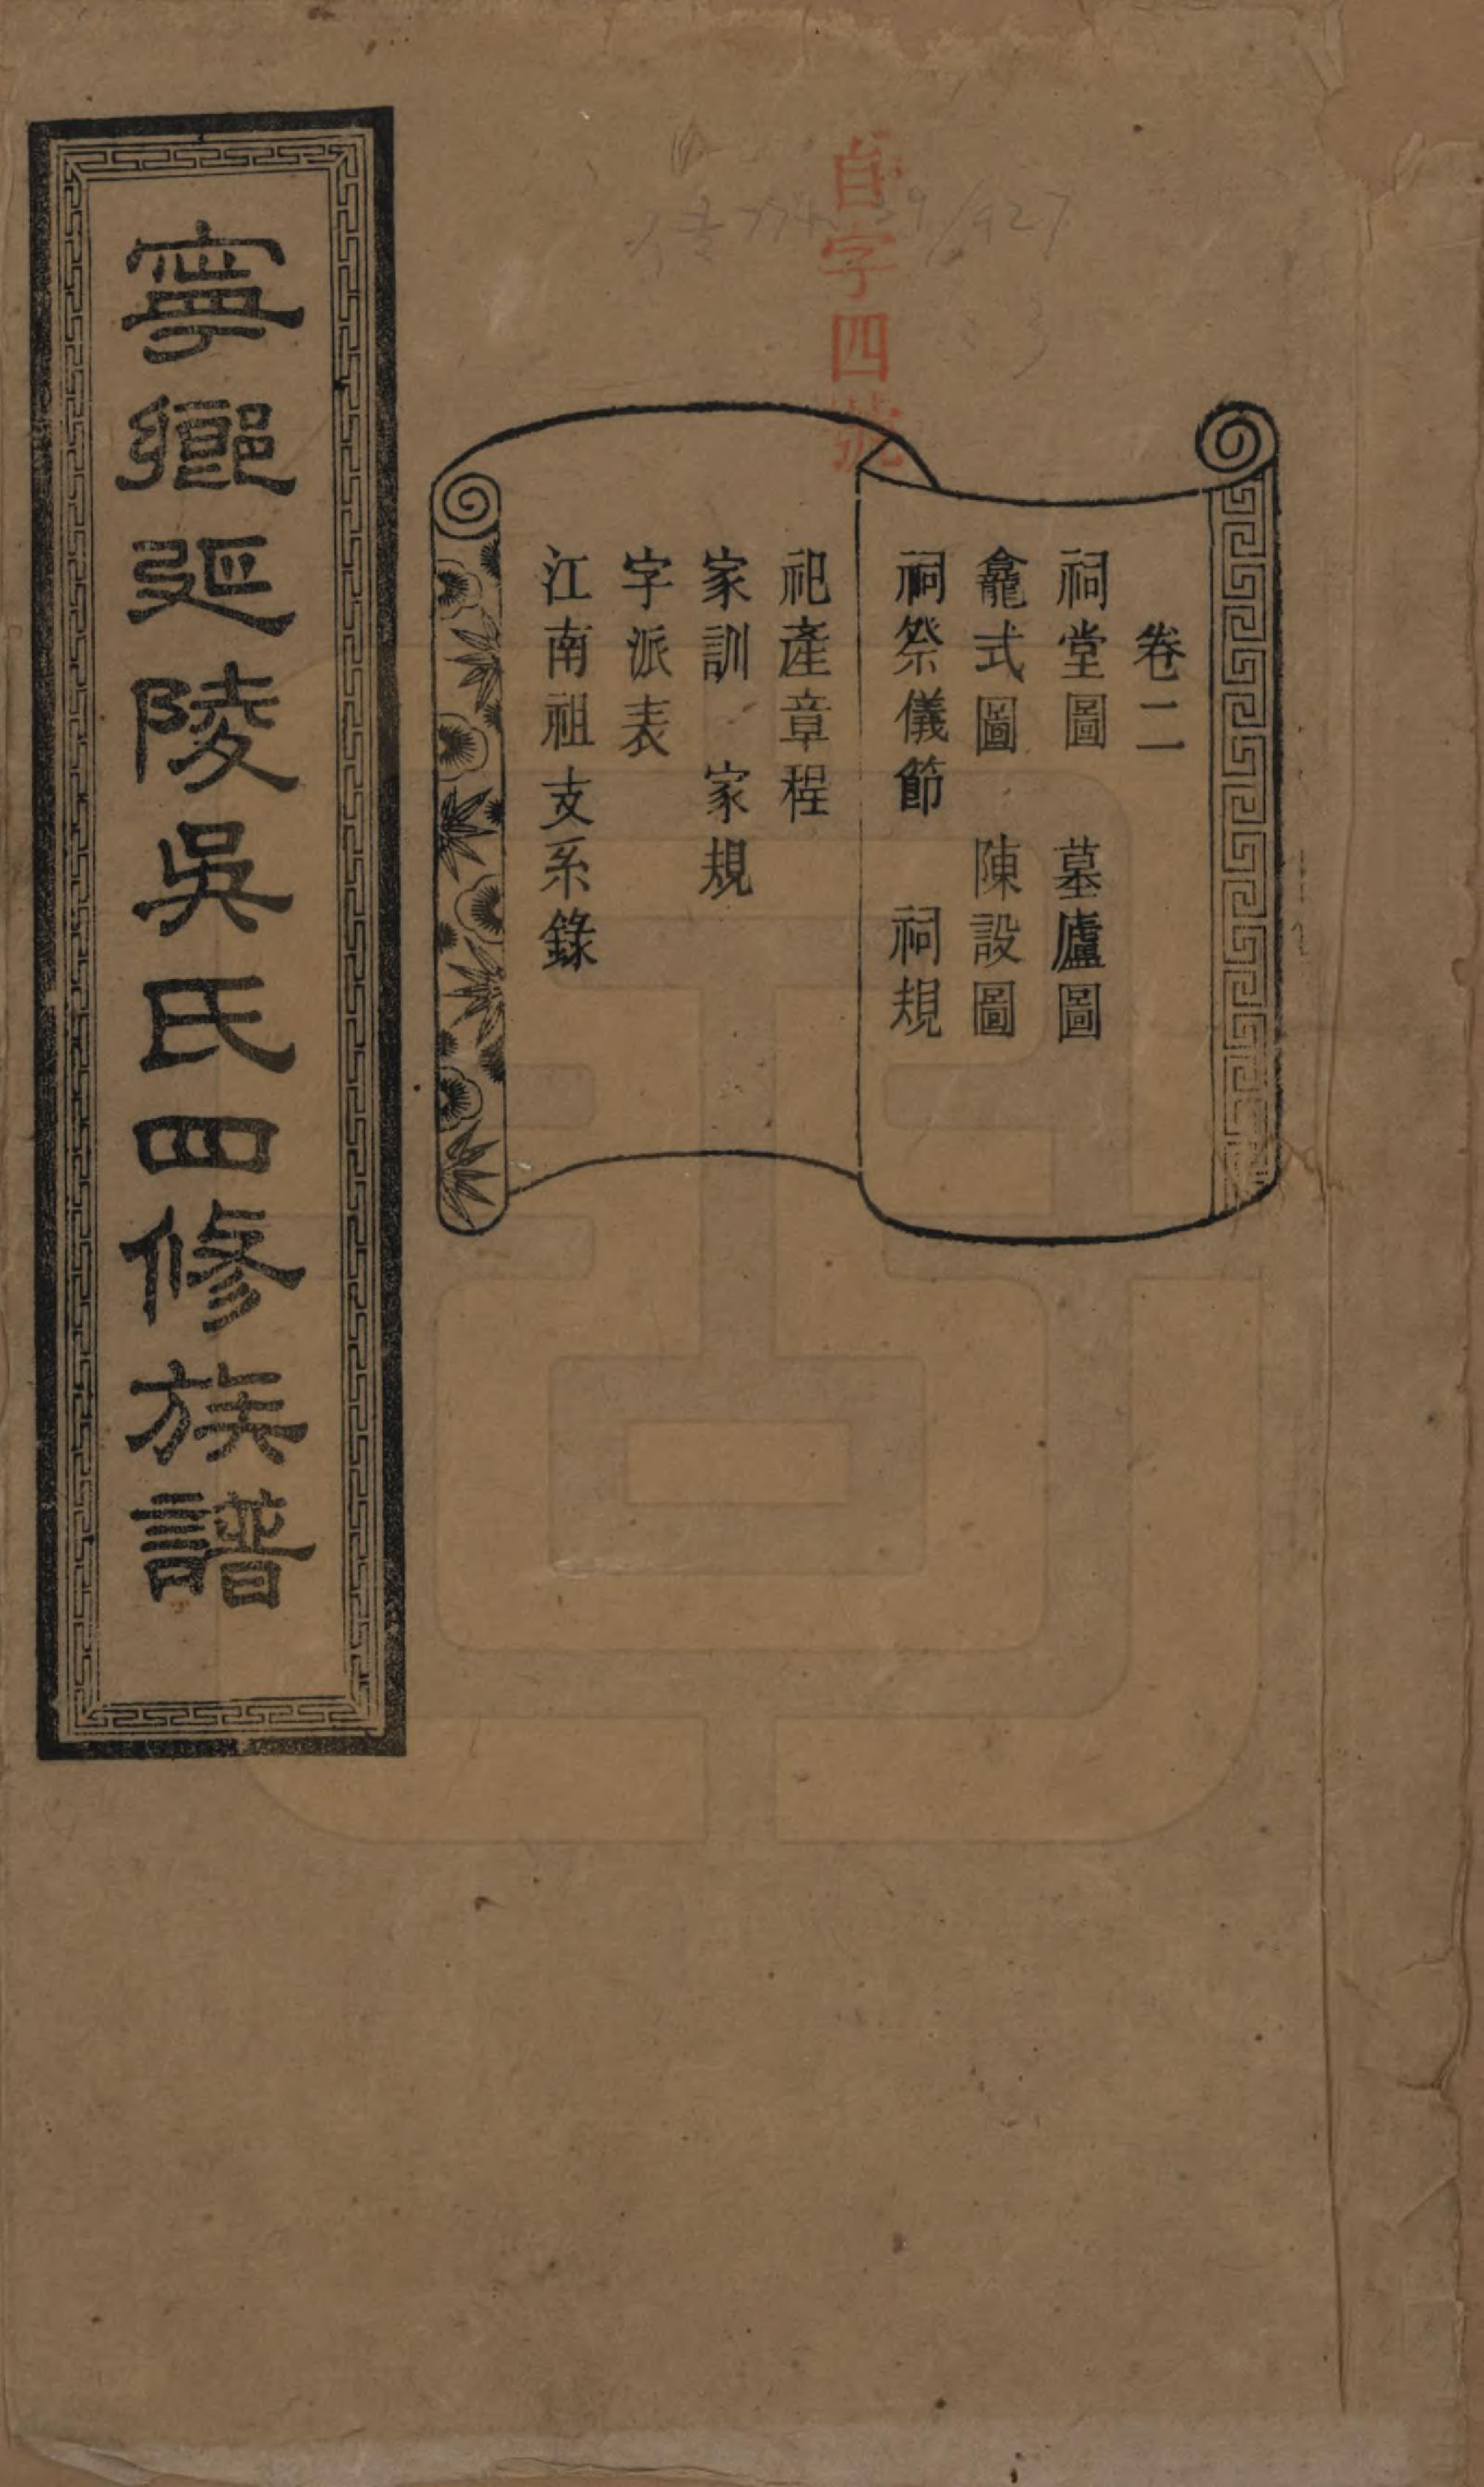 自字四號
卷二
祠堂圖　墓廬圖
龕式圖　陳設圖
祠祭儀節　祠規
祀產章程
家訓　家規
字派表
江南祖支系錄
寧鄉延陵吳氏四修族譜